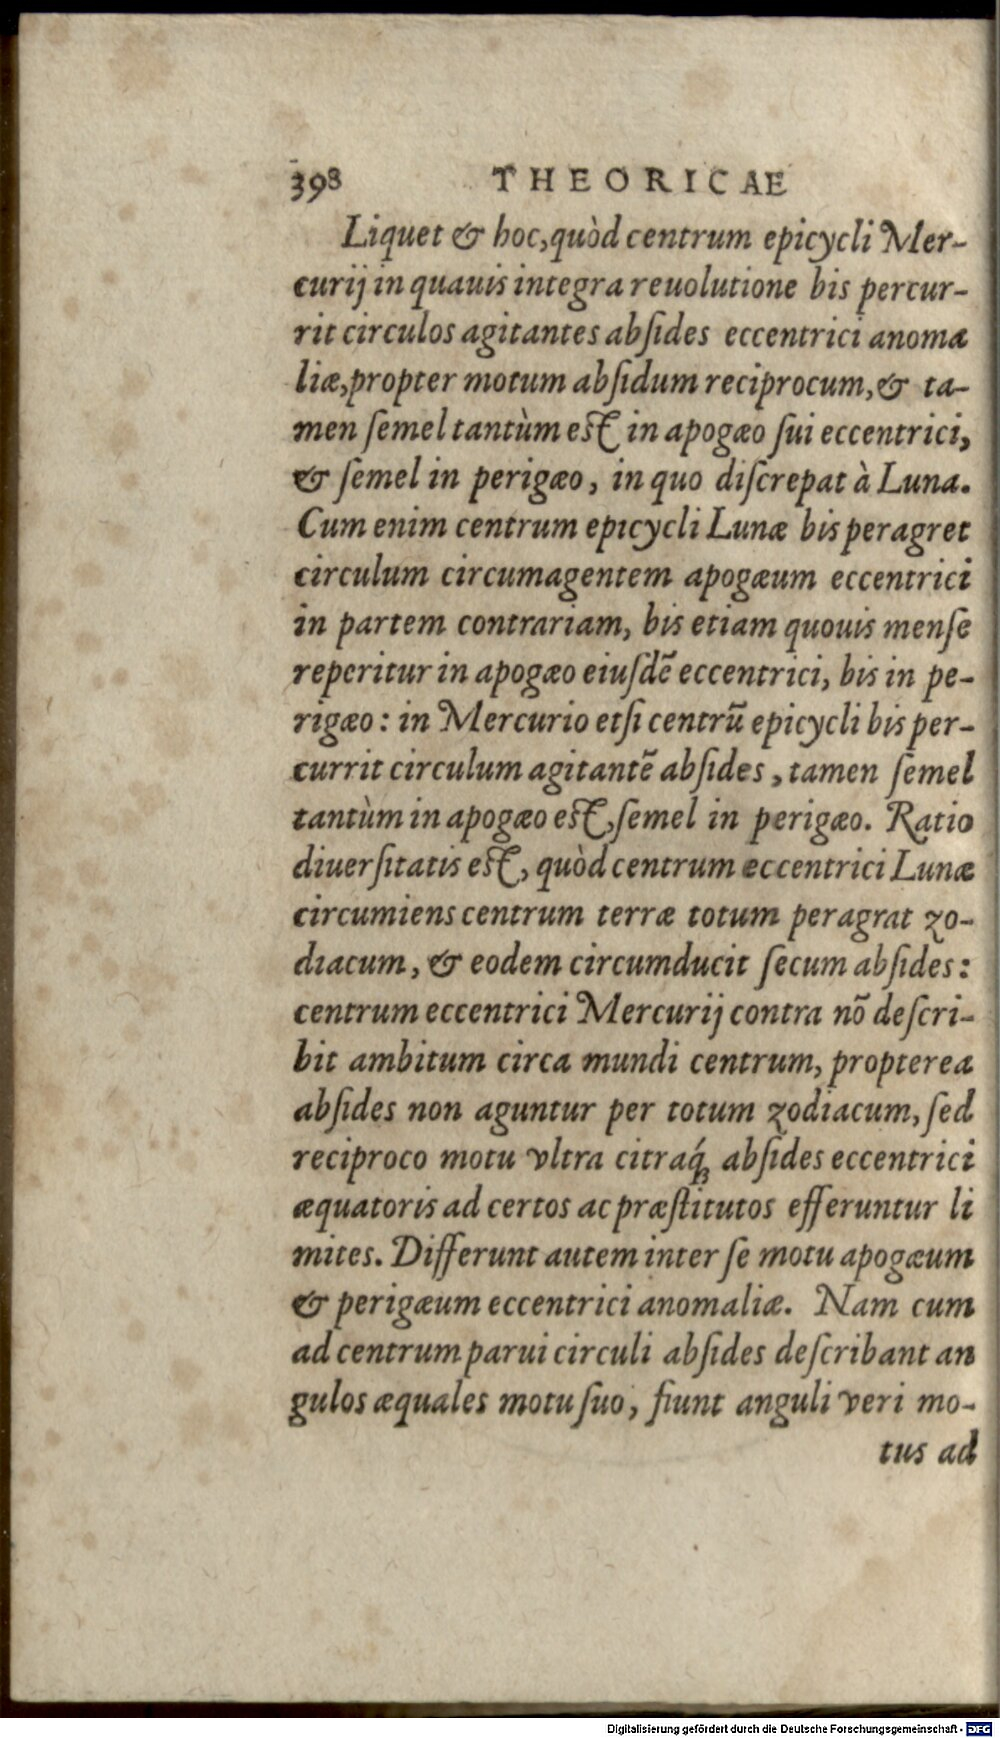 398 THEORICAE
Liquet & hoc, quòd centrum epicycli Mer-
curij in quauis integra reuolutione bis percur-
rit circulos agitantes absides eccentrici anoma
liæ, propter motum absidum reciprocum, & ta-
men semel tantùm est in apogæo sui eccentrici,
& semel in perigæo, in quo discrepat à Luna.
Cum enim centrum epicycli Lunæ bis peragret
circulum circumagentem apogæum eccentrici
in partem contrariam, bis etiam quouis mense
reperitur in apogæo eiusdē eccentrici, bis in pe-
rigæo: in Mercurio etsi centrū epicycli bis per-
currit circulum agitantē absides, tamen semel
tantùm in apogæo est, semel in perigæo. Ratio
diuersitatis est, quòd centrum eccentrici Lunæ
circumiens centrum terræ totum peragrat zo-
diacum, & eodem circumducit secum absides:
centrum eccentrici Mercurij contra nō descri-
bit ambitum circa mundi centrum, propterea
absides non aguntur per totum zodiacum, sed
reciproco motu vltra citraq́; absides eccentrici
æquatoris ad certos ac præstitutos efferuntur li
mites. Differunt autem inter se motu apogæum
& perigæum eccentrici anomaliæ. Nam cum
ad centrum parui circuli absides describant an
gulos æquales motu suo, fiunt anguli veri mo-
tus ad
Digitalisierung gefördert durch die Deutsche Forschungsgemeinschaft - DFG